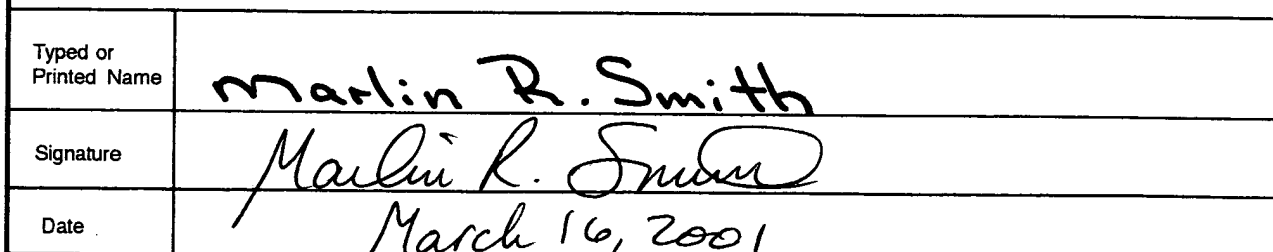 Typed or
Printed Name Marlin R. Smith
Signature Marlin R. Smith
Date March 16, 2001